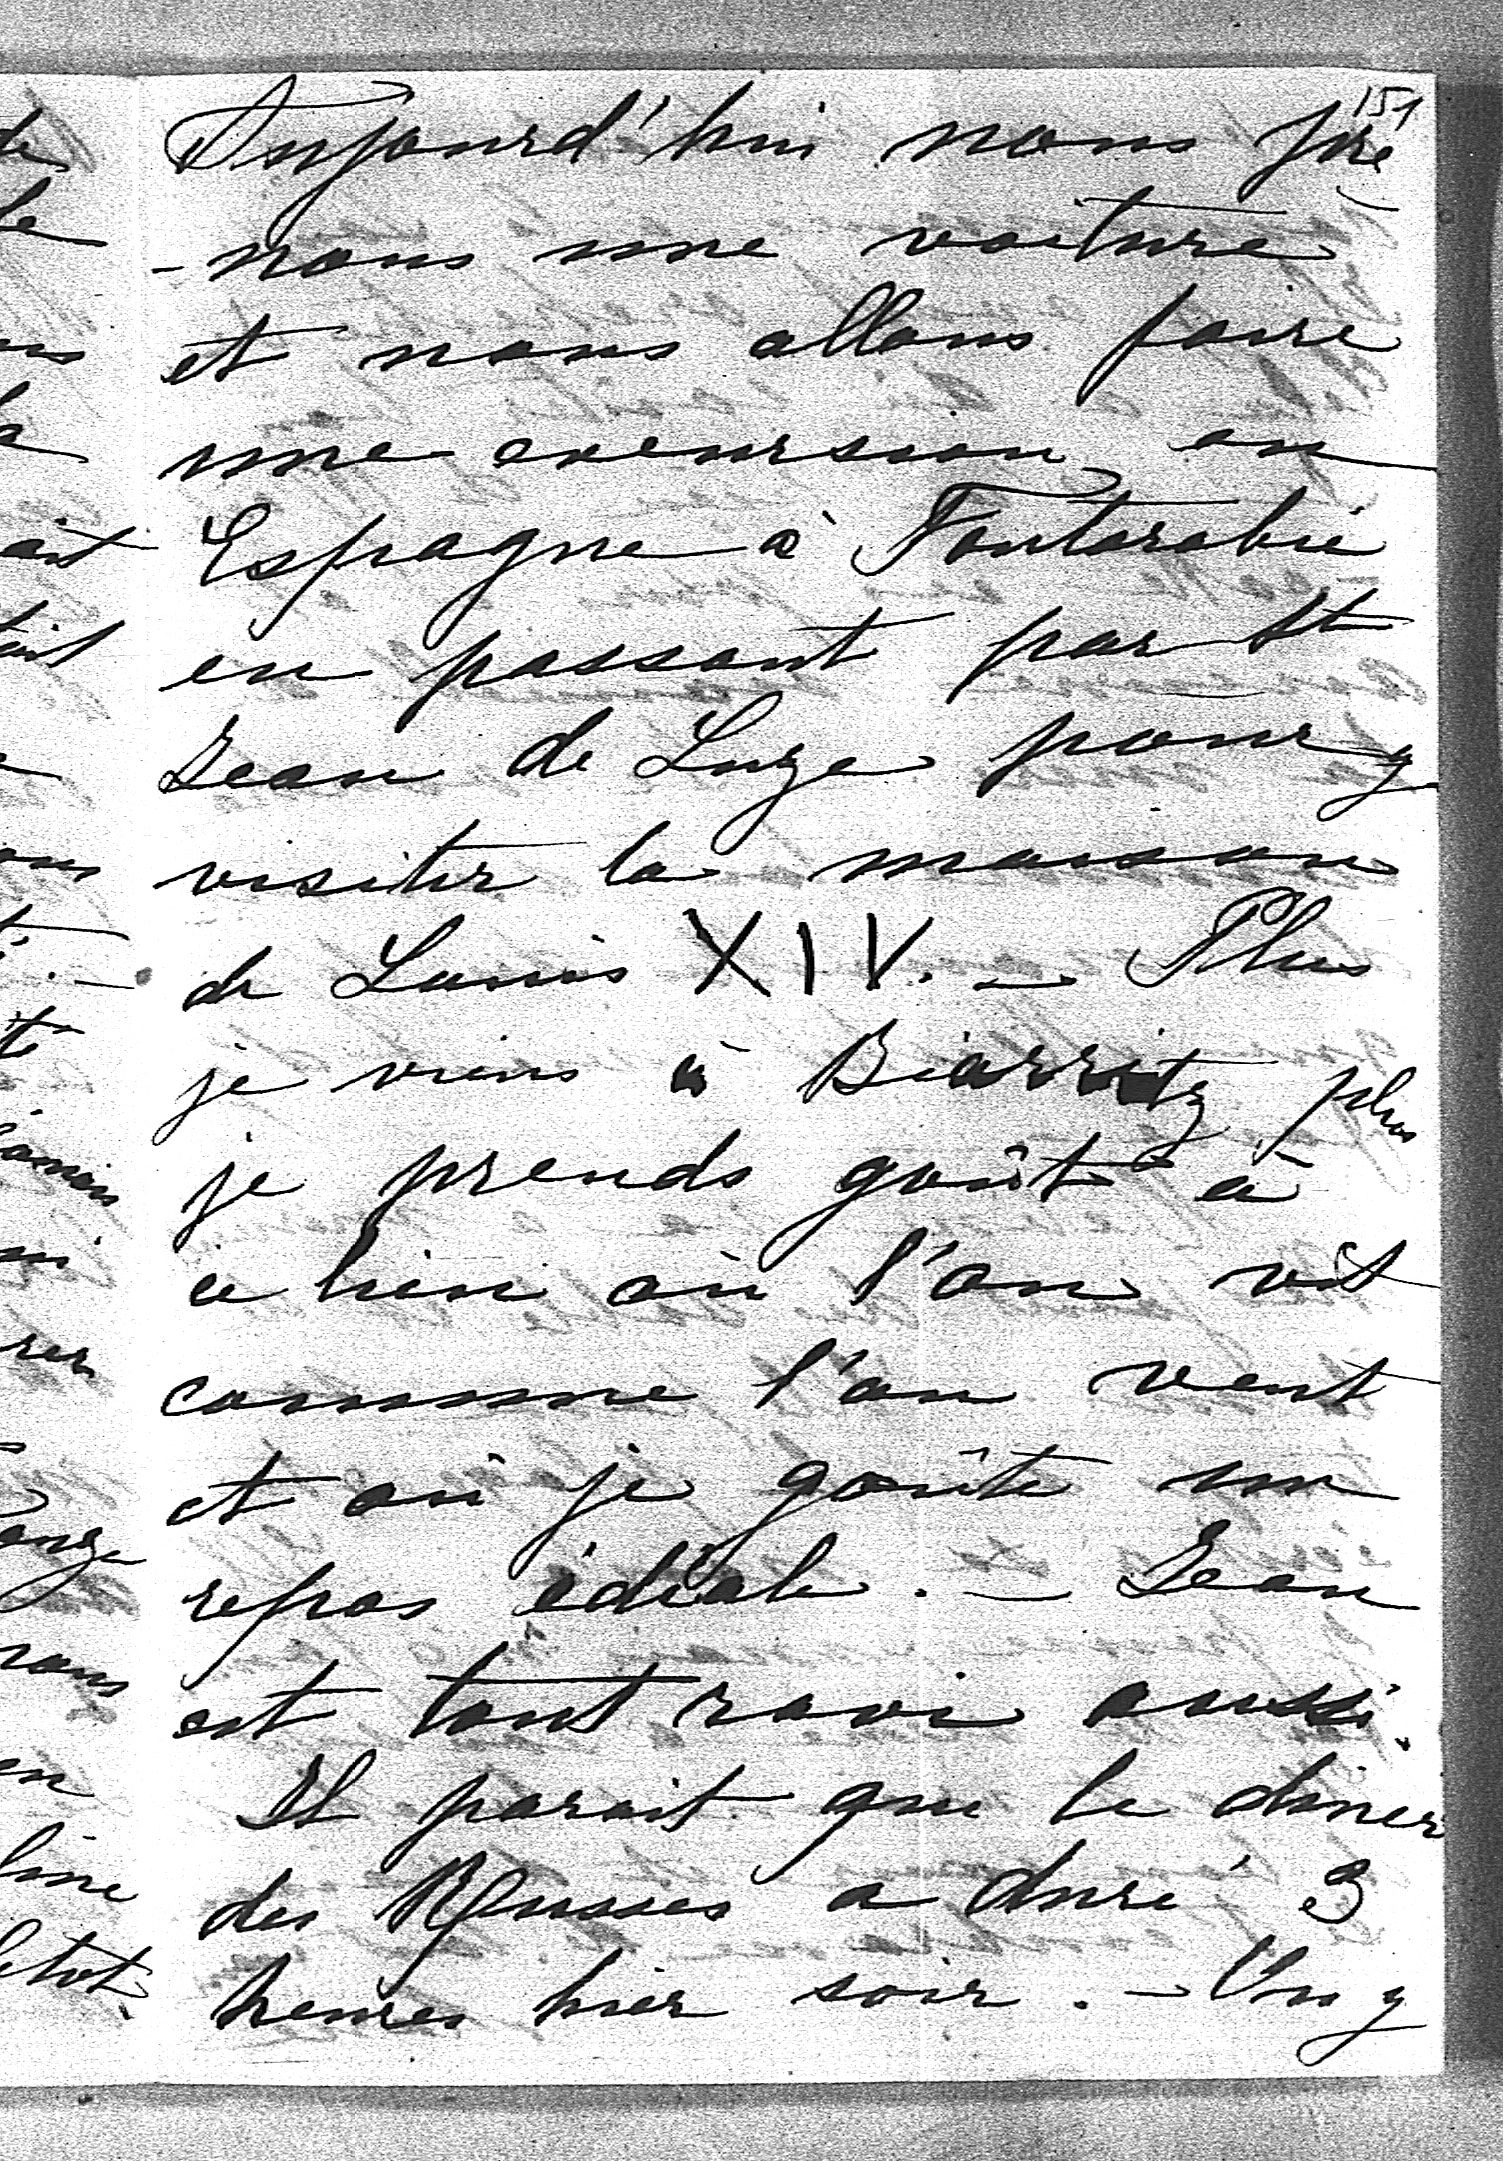 151
Aujourd'hui nous pre
-nons une voiture
et nous allons faire
une excursion en
Espagne à Fontarabie
en passant par St
Jean de Luze pour y
visiter la maison
de Louis XIV. — Plus
je viens à Biarritz plus
je prends goût à
ce lieu où l'on vit
comme l'on veut
et où je goûte un
repos idéal. — Jean
est tout ravi aussi.
Il parait que le diner
des Russes a duré 3
heures hier soir. — On y